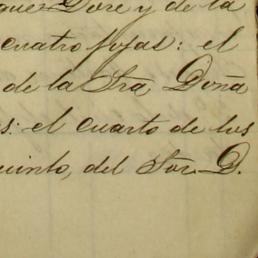 que Dore y de la
cuatro fojas: el
de la Sra Doña
s: el cuarto de los
uinto, del Sor. D.